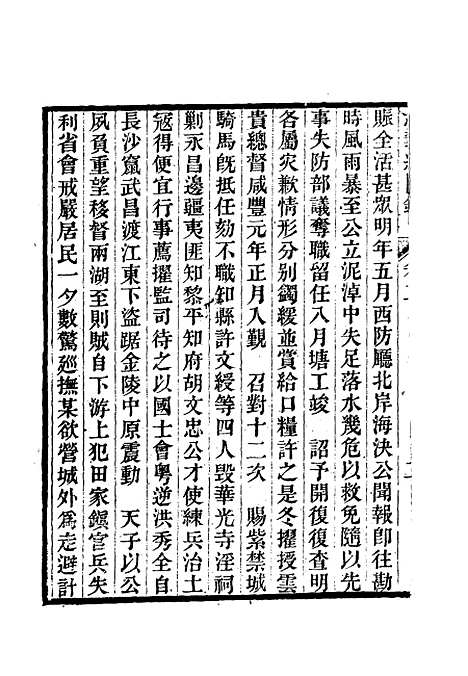 賑全活甚眾明年五月西防廳北岸海決公聞報卽往勘
時風雨暴至公立泥淖中失足落水幾危以救免隨以先
事失防部議奪職留任八月塘工竣 詔予開復復查明
各屬災歉情形分别蠲緩並賞給口糧許之是冬擢授雲
貴總督咸豐元年正月入覲 召對十二次 賜紫禁城
騎馬旣抵任劾不職知縣許文綬等四人毁華光寺淫祠
剿永昌邊疆夷匪知黎平知府胡文忠公才使練兵治土
寇得便宜行事薦擢監司待之以國士會粵逆洪秀全自
長沙竄武昌渡江東下盜踞金陵中原震動 天子以公
夙負重望移督兩湖至則賊自下游上犯田家鎭官兵失
利省會戒嚴居民一夕數驚廵撫某欲營城外爲走避計